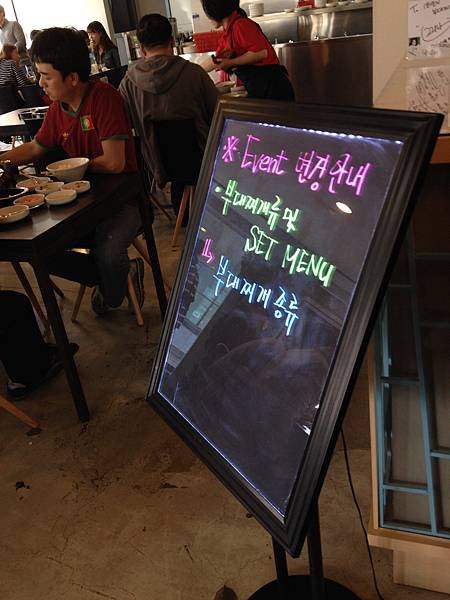 ※ Event 변경안내
• 부대찌개류 및
SET MENU
↳ 부대찌개 종류